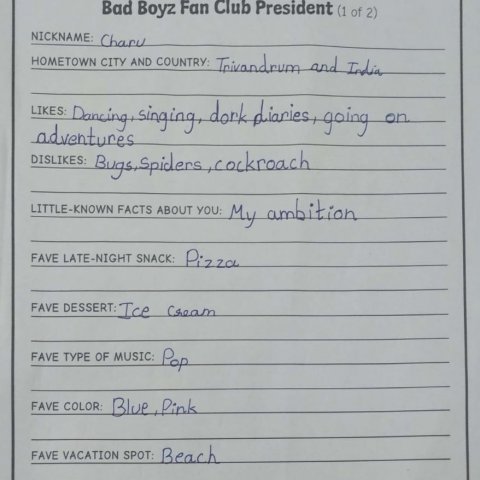 Bad Boyz Fan Club President (1 of 2)
NICKNAME: Charu
HOMETOWN CITY AND COUNTRY: Trivandrum and India
LIKES: Dancing, singing, dork diaries, going on
adventures
DISLIKES: Bugs, Spiders, cockroach
LITTLE-KNOWN FACTS ABOUT YOU: My ambition
FAVE LATE-NIGHT SNACK: Pizza
FAVE DESSERT: Ice Cream
FAVE TYPE OF MUSIC: Pop
FAVE COLOR: Blue, Pink
FAVE VACATION SPOT: Beach